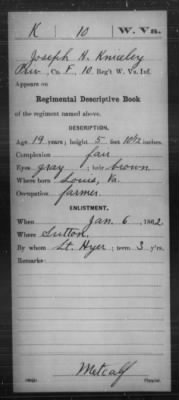 K 10 W. Va.
Joseph H. Kniceley
Priv, Co. F, 10 Reg't W. Va. Inf.
Appears on
Regimental Descriptive Book
of the regiment named above.
DESCRIPTION.
Age 19 years; height 5 feet 10½ inches.
Complexion fair
Eyes gray; hair brown
Where born Va.
Occupation farmer.
ENLISTMENT.
When Jan. 6, 1862
Where Sutton.
By whom Lt. Hyer; term 3 y'rs.
Remarks:
Metcalf
Copyist.